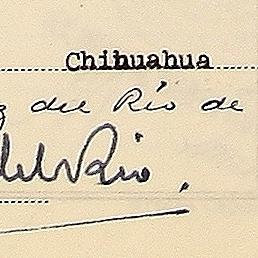 Chihuahua
z del Río de
del Rio.